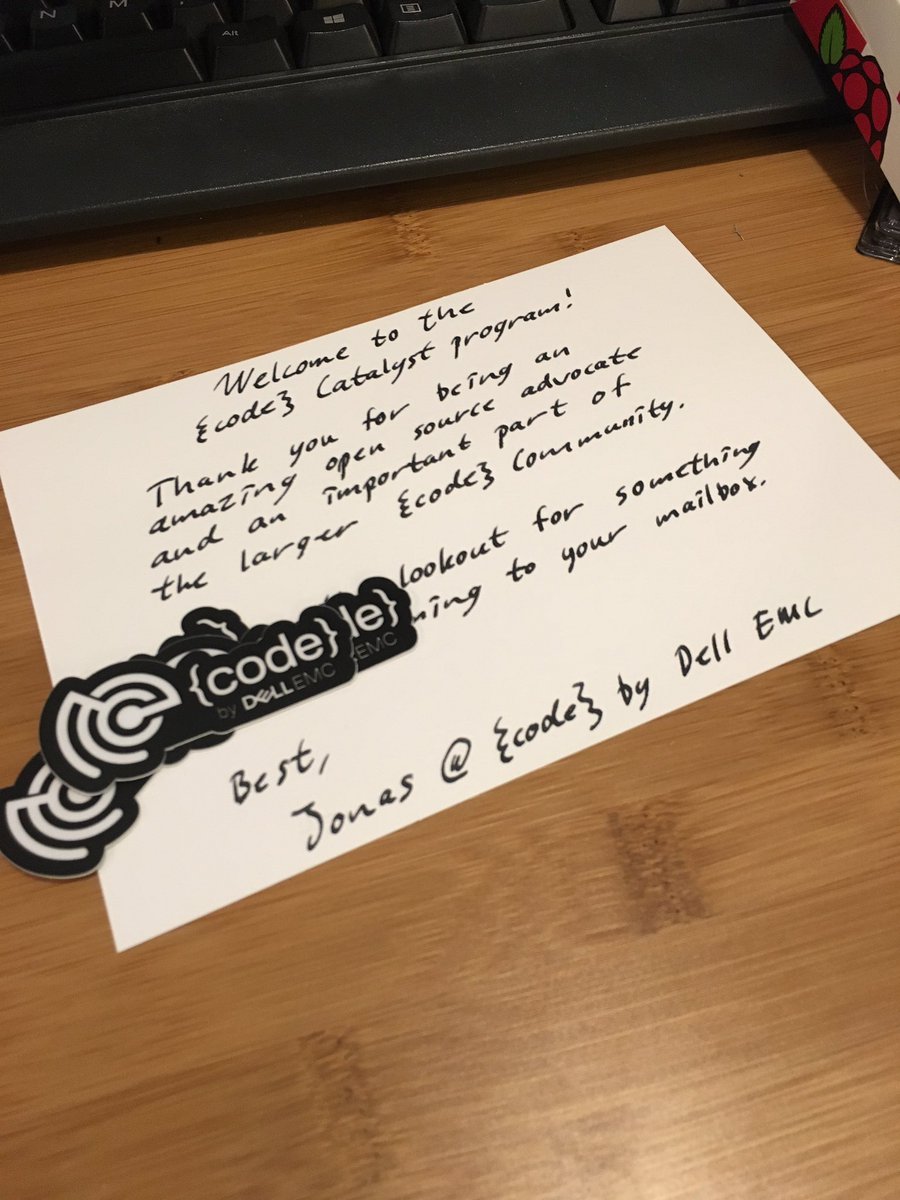 N
M
Alt
Welcome to the
{code} Catalyst program!
Thank you for being an
amazing open source advocate
and an important part of
the larger {code} Community.
lookout for something
to your mailbox.
{code}
by DELLEMC
de}
EMC
Best,
Jonas @ {code} by Dell EMC